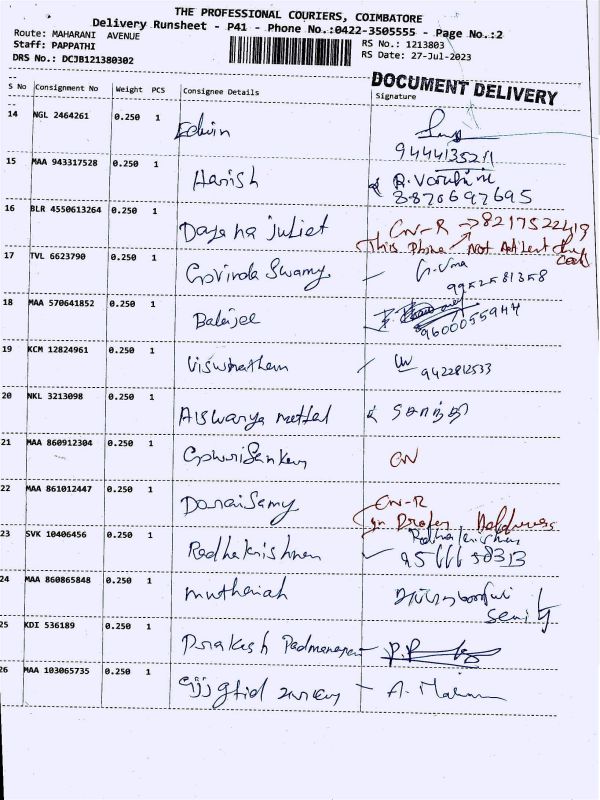 THE PROFESSIONAL COURIERS, COIMBATORE
Delivery Runsheet - P41 - Phone No.:0422-3505555 - Page No.:2
Route: MAHARANI AVENUE RS No.: 1213803
Staff: PAPPATHI RS Date: 27-Jul-2023
DRS No.: DCJB121380302
DOCUMENT DELIVERY
S No Consignment No Weight PCS Consignee Details Signature
14 NGL 2464261 0.250 1 Edwin
9444135211
15 MAA 943317528 0.250 1 Harish
8870697695
16 BLR 4550613264 0.250 1 Dayana Juliet CN-R → 8217522419
This Phone Not
17 TVL 6623790 0.250 1 Govinda Swamy G. Uma
9952581358
18 MAA 570641852 0.250 1 Balajee
9600055944
19 KCM 12824961 0.250 1 Viswnathem
9422812533
20 NKL 3213098 0.250 1 Aiswarya
21 MAA 860912304 0.250 1 GowriSankar CN
22 MAA 861012447 0.250 1 DoraiSamy CN-R
23 SVK 10406456 0.250 1 Radhakrishnan
24 MAA 860865848 0.250 1 Muthaiah
25 KDI 536189 0.250 1 Prakash
26 MAA 103065735 0.250 1